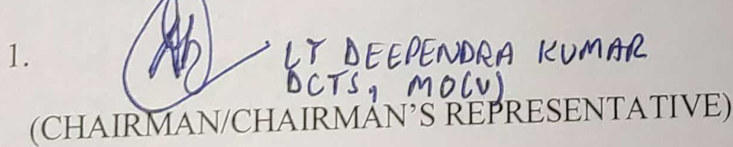 1.
LT DEEPENDRA KUMAR
DCTS, MO(V)
(CHAIRMAN/CHAIRMAN'S REPRESENTATIVE)